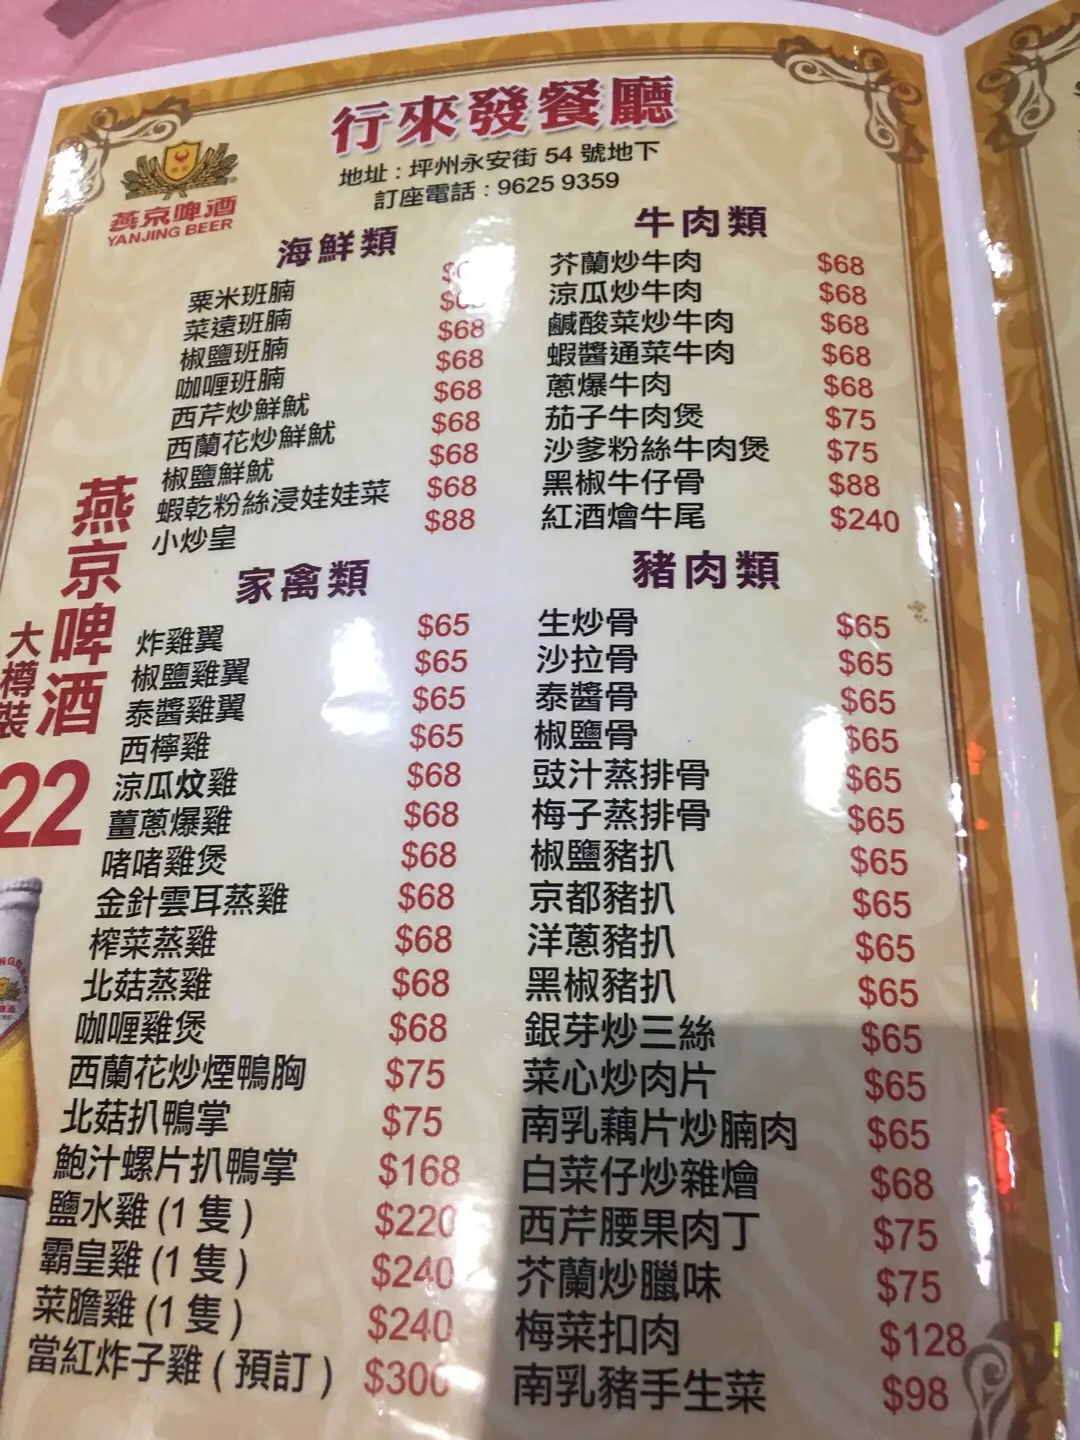 行來發餐廳
地址 : 坪州永安街 54 號地下
訂座電話 : 9625 9359
燕京啤酒
YANJING BEER
海鮮類
粟米班腩
菜遠班腩
椒鹽班腩 $68
咖喱班腩 $68
西芹炒鮮魷 $68
西蘭花炒鮮魷 $68
椒鹽鮮魷 $68
蝦乾粉絲浸娃娃菜 $68
小炒皇 $88
家禽類
炸雞翼 $65
椒鹽雞翼 $65
泰醬雞翼 $65
西檸雞 $65
涼瓜炆雞 $68
薑蔥爆雞 $68
啫啫雞煲 $68
金針雲耳蒸雞 $68
榨菜蒸雞 $68
北菇蒸雞 $68
咖喱雞煲 $68
西蘭花炒煙鴨胸 $75
北菇扒鴨掌 $75
鮑汁螺片扒鴨掌 $168
鹽水雞 (1 隻) $220
霸皇雞 (1 隻) $240
菜膽雞 (1 隻) $240
當紅炸子雞 ( 預訂 ) $300
牛肉類
芥蘭炒牛肉 $68
涼瓜炒牛肉 $68
鹹酸菜炒牛肉 $68
蝦醬通菜牛肉 $68
蔥爆牛肉 $68
茄子牛肉煲 $75
沙爹粉絲牛肉煲 $75
黑椒牛仔骨 $88
紅酒燴牛尾 $240
豬肉類
生炒骨 $65
沙拉骨 $65
泰醬骨 $65
椒鹽骨 $65
豉汁蒸排骨 $65
梅子蒸排骨 $65
椒鹽豬扒 $65
京都豬扒 $65
洋蔥豬扒 $65
黑椒豬扒 $65
銀芽炒三絲 $65
菜心炒肉片 $65
南乳藕片炒腩肉 $65
白菜仔炒雜燴 $68
西芹腰果肉丁 $75
芥蘭炒臘味 $75
梅菜扣肉 $128
南乳豬手生菜 $98
燕京啤酒
大樽裝
22